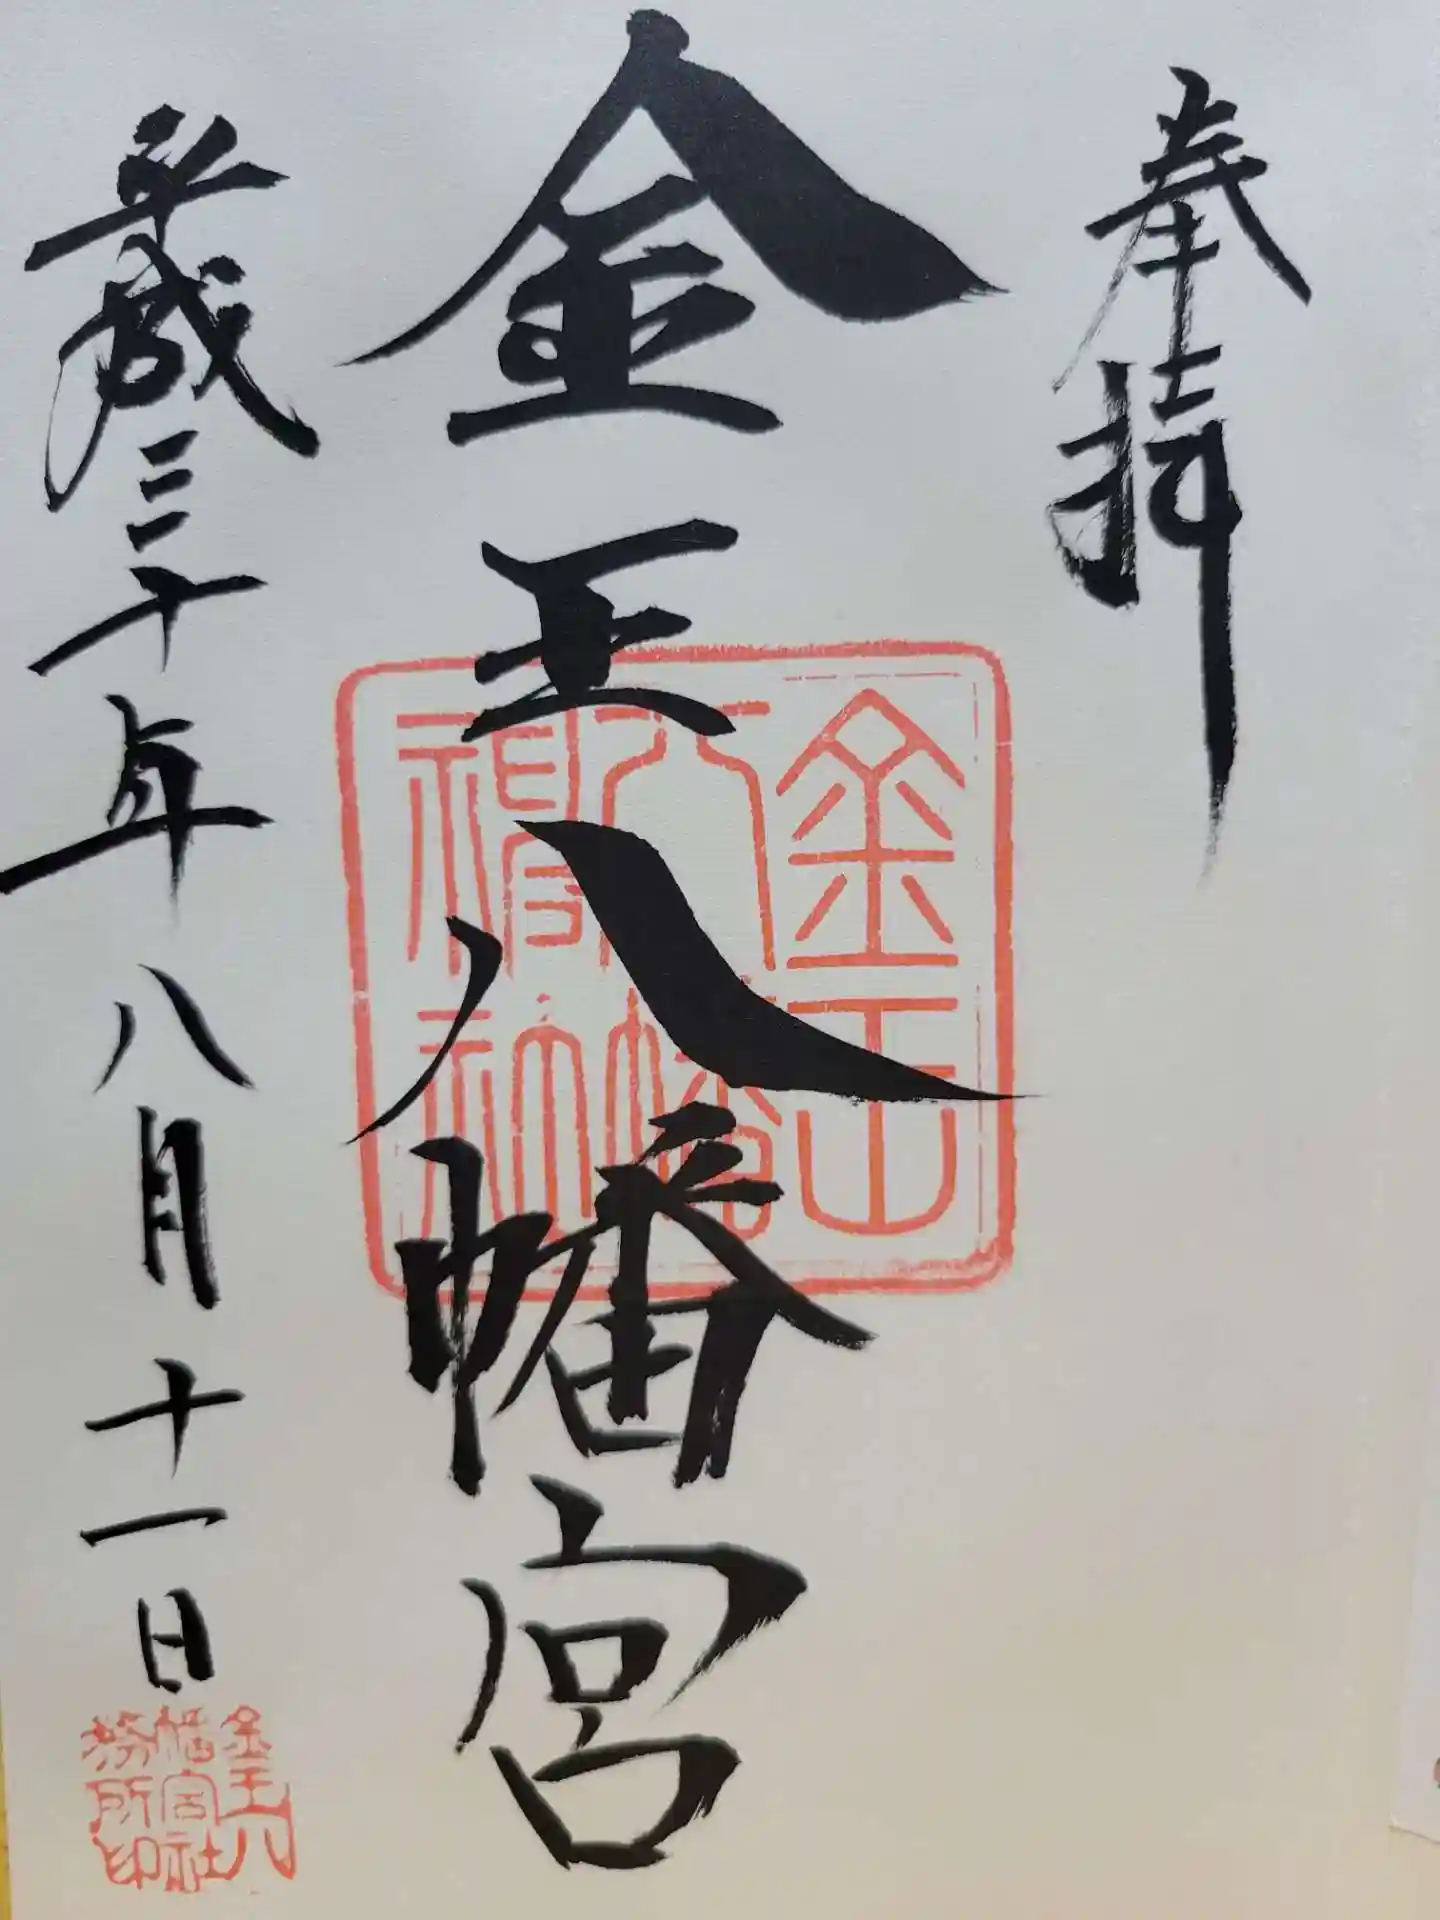 奉拝
金王八幡宮
金王
八幡
神社
平成三十年八月十一日
金王八
幡宮社
務所印